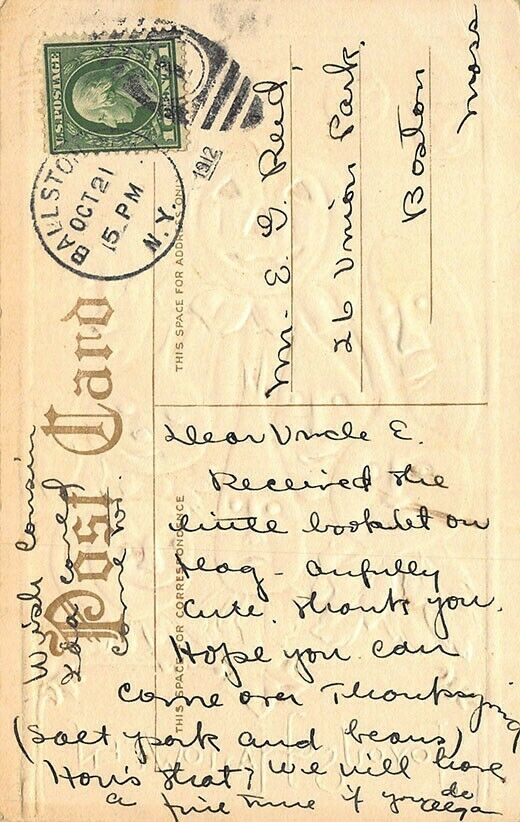 U.S. POSTAGE
BALLSTON
OCT 21
15 PM
N.Y.
1912
Post Card
THIS SPACE FOR ADDRESS ONLY
Mr. E. G. Reed
26 Union Park.
Boston
Mass
THIS SPACE FOR CORRESPONDENCE
Dear Uncle E.
Received the
little booklet on
- awfully
cute. Thank you.
Hope you can
come over Thanksgiving
(salt pork and beans)
How's that? We will have
a fine time if you do
Wish Cousin
Ida could
come